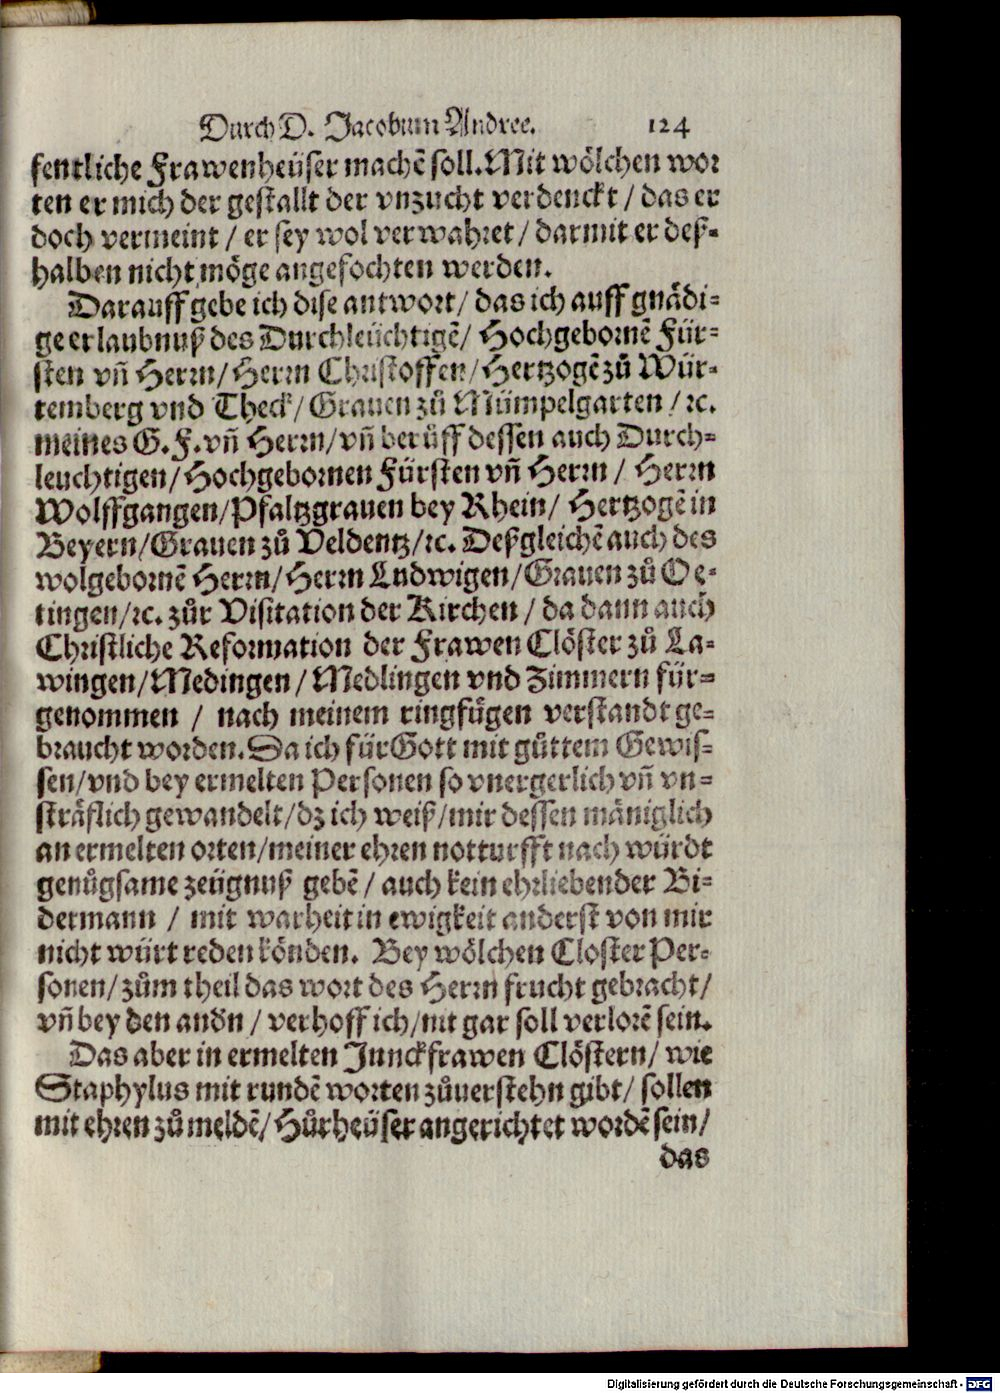 Durch D. Jacobum Andree. 124
fentliche Frawenheüser machẽ soll. Mit wölchen wor
ten er mich der gestallt der vnzucht verdenckt / das er
doch vermeint / er sey wol verwahret / darmit er deß-
halben nicht möge angefochten werden.
Darauff gebe ich dise antwort / das ich auff gnädi-
ge erlaubnuß des Durchleüchtigẽ / Hochgebornẽ Für-
sten vñ Herrn / Herrn Christoffen / Hertzogẽ zů Wür-
temberg vnd Theck / Grauen zů Mümpelgarten / ꝛc.
meines G. F. vñ Herrn / vñ berůff dessen auch Durch-
leuchtigen / Hochgebornen Fürsten vñ Herrn / Herrn
Wolffgangen / Pfaltzgrauen bey Rhein / Hertzogẽ in
Beyern / Grauen zů Veldentz / ꝛc. Deßgleichẽ auch des
wolgebornẽ Herrn / Herrn Ludwigen / Grauen zů Oe-
tingen / ꝛc. zůr Visitation der Kirchen / da dann auch
Christliche Reformation der Frawen Clöster zů La-
wingen / Medingen / Medlingen vnd Zimmern für-
genommen / nach meinem ringfůgen verstandt ge-
braucht worden. Da ich für Gott mit gůttem Gewis-
sen / vnd bey ermelten Personen so vnergerlich vñ vn-
sträflich gewandelt / dz ich weiß / mir dessen mäniglich
an ermelten orten / meiner ehren notturfft nach würdt
genůgsame zeügnuß gebẽ / auch kein ehrliebender Bi-
dermann / mit warheit in ewigkeit anderst von mir
nicht würt reden könden. Bey wölchen Closter Per-
sonen / zům theil das wort des Herrn frucht gebracht /
vñ bey den andn / verhoff ich / nit gar soll verlorẽ sein.
Das aber in ermelten Junckfrawen Clöstern / wie
Staphylus mit rundẽ worten zůuerstehn gibt / sollen
mit ehren zů meldẽ / Hůrheüser angerichtet wordẽ sein /
das
Digitalisierung gefördert durch die Deutsche Forschungsgemeinschaft - DFG